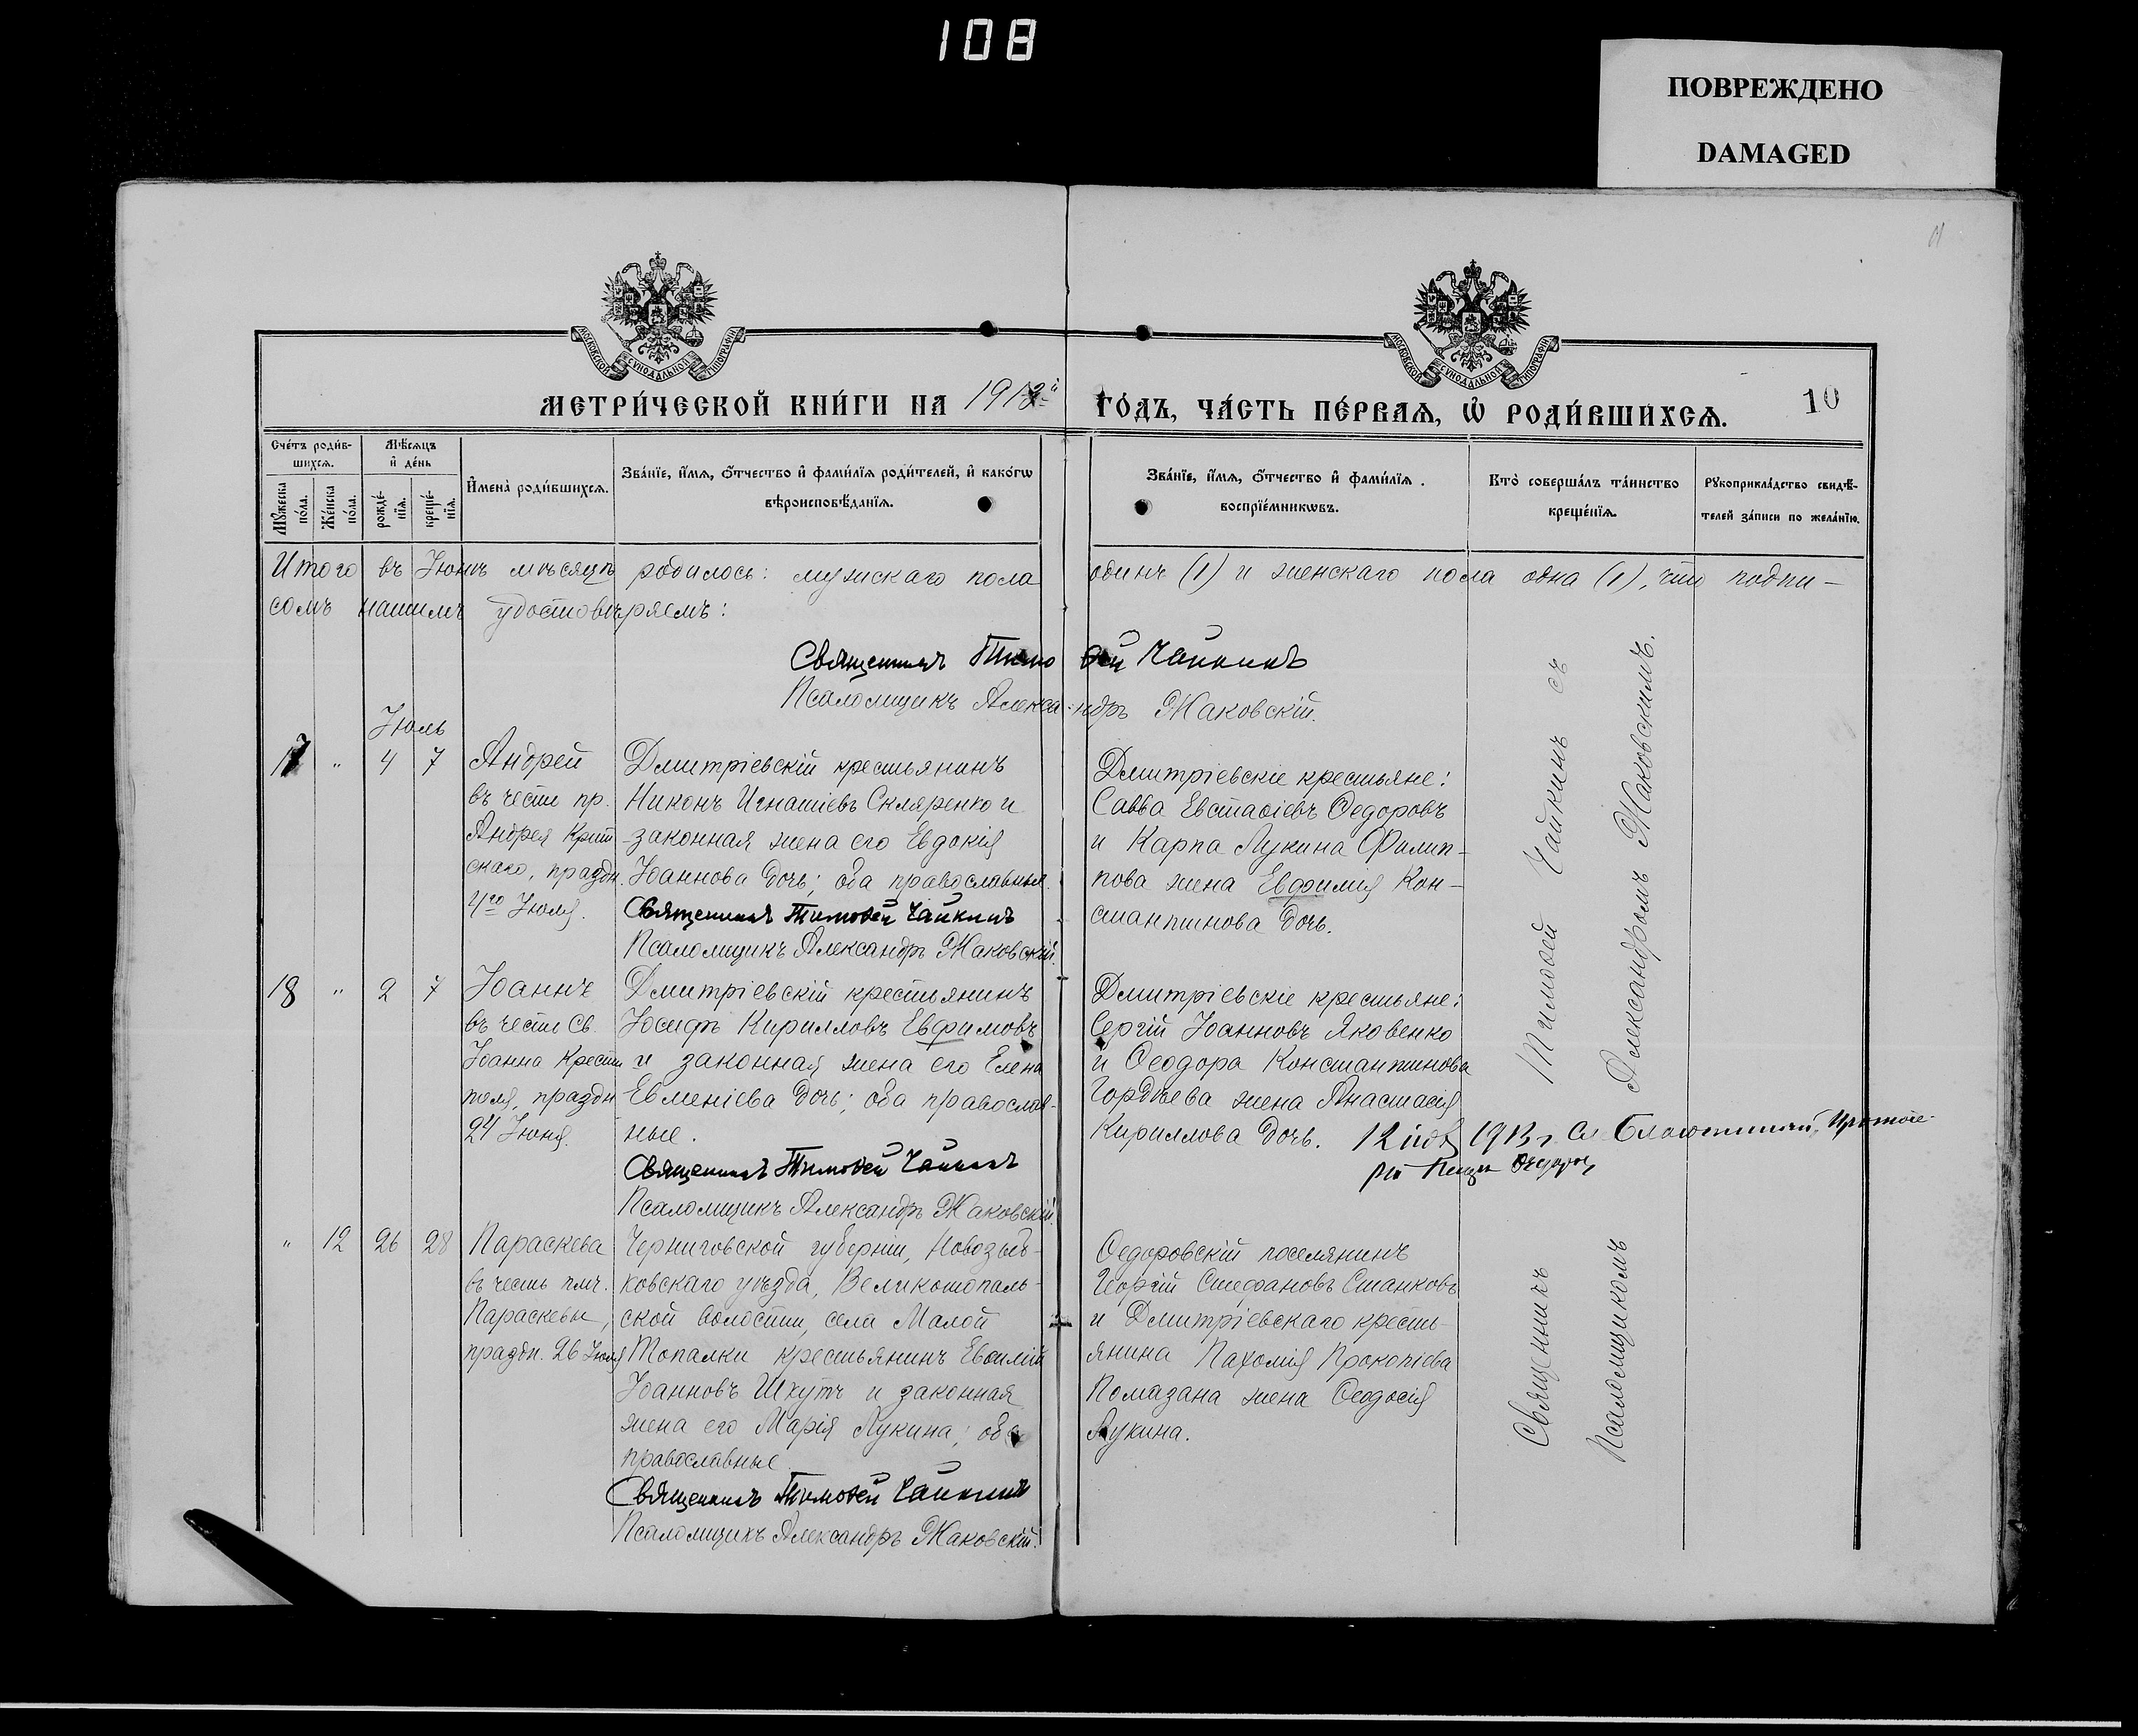 108
ПОВРЕЖДЕНО
DAMAGED
МОСКОВСКОЙ СѴНОДАЛЬНОЙ ТИПОГРАФІИ
МОСКОВСКОЙ СѴНОДАЛЬНОЙ ТИПОГРАФІИ
МЕТРИ́ЧЕСКОЙ КНИ́ГИ НА 1913й ГО́ДЪ, ЧА́СТЬ ПЕ́РВАѦ, Ѡ҆ РОДИ́ВШИХСѦ.
10
Сче́тъ роди́в-
шихсѧ.
Мѣ́сѧцъ
и҆ де́нь
Мꙋ́жеска по́ла.
Же́нска по́ла.
рожде́-
нїѧ.
креще́-
нїѧ.
И҆мена̀ роди́вшихсѧ.
Зва́нїе, и҆́мѧ, ѻ҆́тчество и҆ фами́лїѧ роди́телей, и҆ како́гѡ
вѣроисповѣ́данїѧ.
Зва́нїе, и҆́мѧ, ѻ҆́тчество и҆ фами́лїѧ
воспрїе́мникѡвъ.
Кто̀ соверша́лъ та́инство
креще́нїѧ.
Рꙋкоприкла́дство свидѣ́-
телей за́писи по жела́нїю.
Итого въ Іюнѣ мѣсяцѣ родилось: мужскаго пола одинъ (1) и женскаго пола одна (1), что подпи-
сомъ нашимъ удостовѣряемъ:
Священникъ Тимоѳей Чайкинъ
Псаломщикъ Александръ Жаковскій.
Іюль
17 " 4 7
Андрей
въ честь пр.
Андрея Крит
скаго, праздн.
4го Іюля.
Дмитріевскій крестьянинъ
Никонъ Игнатіевъ Скляренко и
законная жена его Евдокія
Іоаннова дочь; оба православныя.
Священникъ Тимоѳей Чайкинъ
Псаломщикъ Александръ Жаковскій.
Дмитріевскіе крестьяне:
Савва Евстаѳіевъ Ѳедоровъ
и Карпа Лукина Филип-
пова жена Евфимія Кон-
стантинова дочь.
18 " 2 7
Іоаннъ
въ честь Св.
Іоанна Крести
теля, праздн
24 Іюня.
Дмитріевскій крестьянинъ
Іосифъ Кирилловъ Евфимовъ
и законная жена его Елена
Евменіева дочь; оба православ-
ные.
Священникъ Тимоѳей Чайкинъ
Псаломщикъ Александръ Жаковскій.
Дмитріевскіе крестьяне:
Сергій Іоанновъ Яковенко
и Ѳеодора Константинова
Гордѣева жена Анастасія
Кириллова дочь.
1913 г.
" 12 26 28
Параскева
въ честь пмч.
Параскевы,
праздн. 26 Іюля
Черниговской губерніи, Новозыб-
ковскаго уѣзда, Великотопаль-
ской волости, села Малой
Топалки крестьянинъ
Іоанновъ Шкутъ и законная
жена его Марія Лукина; оба
православные
Священникъ Тимоѳей Чайкинъ
Псаломщикъ Александръ Жаковскій.
Ѳедоровскій поселянинъ
Георгій Стефановъ Станковъ
и Дмитріевскаго кресть-
янина Пахомія Прокопіева
Помазана жена Ѳеодосія
Лукина.
Священникъ Тимоѳей Чайкинъ съ
Псаломщикомъ Александромъ Жаковскимъ.